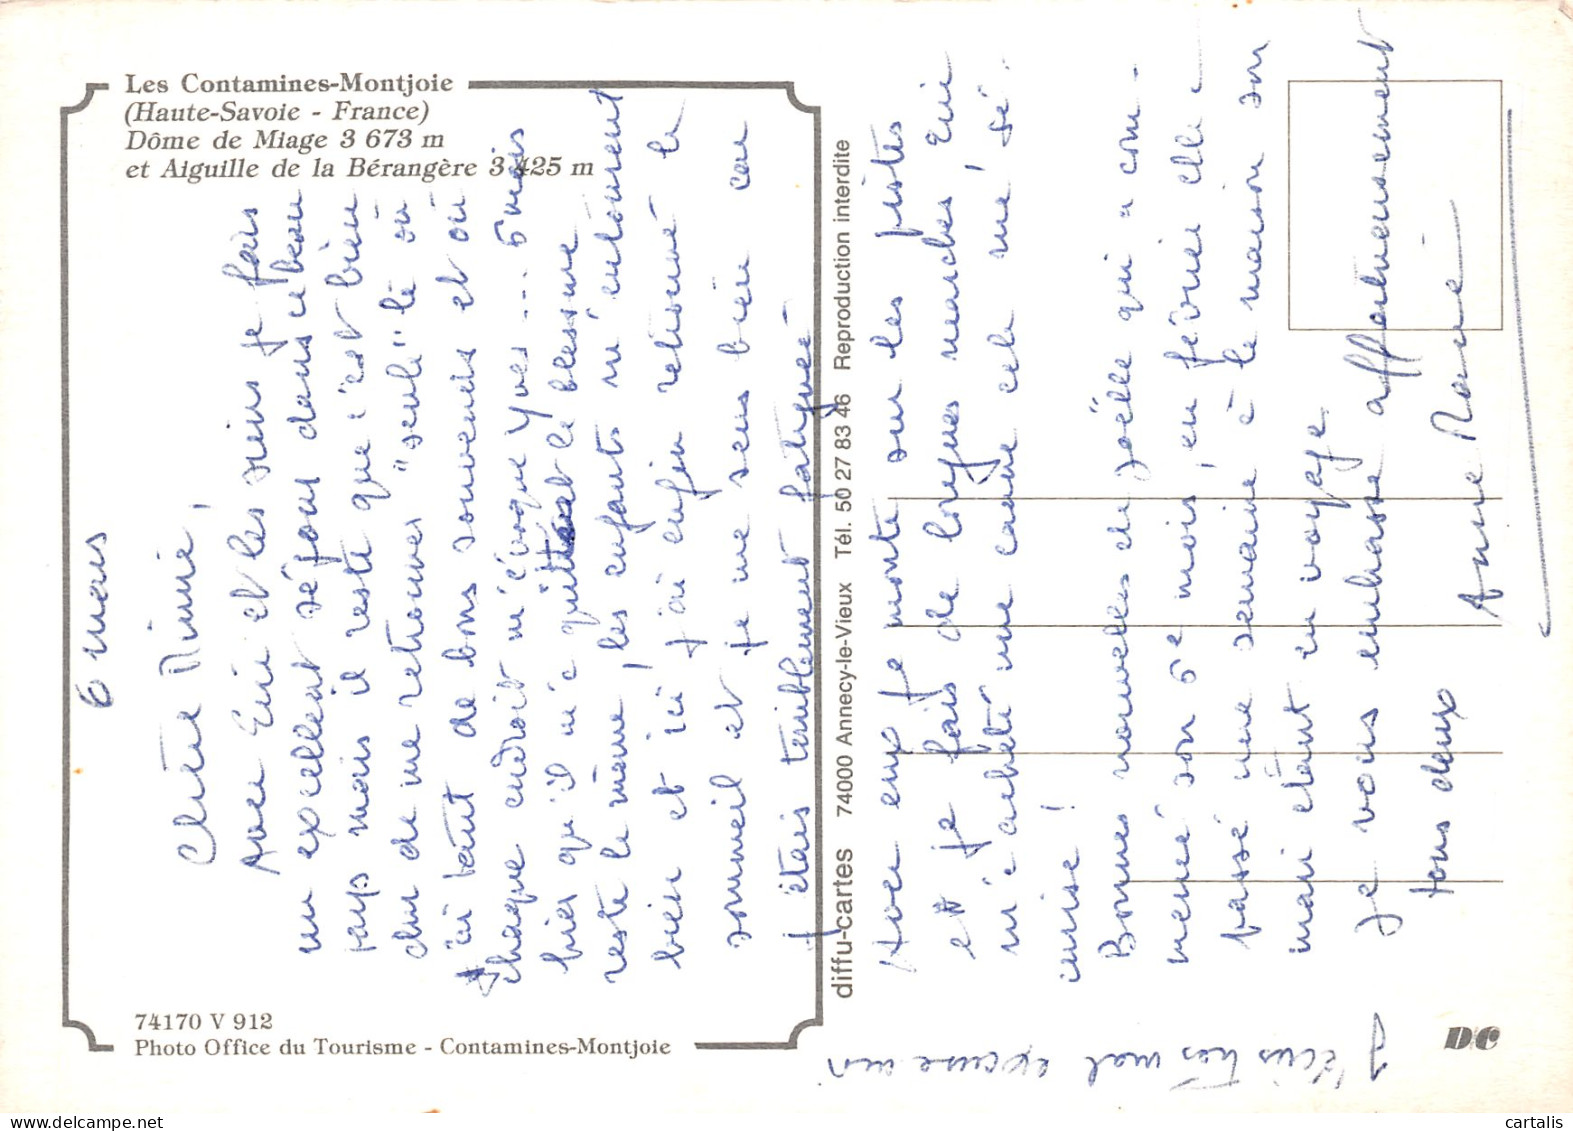 Les Contamines-Montjoie
(Haute-Savoie - France)
Dôme de Miage 3 673 m
et Aiguille de la Bérangère 3 425 m
6 mars
Chère Mimie,
Avec Eric et les siens je fais
un excellent séjour dans ce beau
pays mais il reste que c'est bien
dur de me retrouver "seule" là où
j'ai tant de bons souvenirs et où
chaque endroit m'évoque Yves... 5 mois
hier qu'il m'a quittée la blessure
reste la même, les enfants m'entourent
bien et ici j'ai enfin retrouvé le
sommeil et je me sens bien car
j'étais terriblement fatiguée
Avec eux je monte sur les pistes
et je fais de longues marches Eric
m'a acheté une canne cela me sé-
curise !
Bonnes nouvelles de Joëlle qui a com-
mencé son 5e mois, en février elle a
passé une semaine à la maison son
mari étant en voyage
Je vous embrasse affectueusement
tous deux
Anne Marie
J'écris très mal excuse moi
74170 V 912
Photo Office du Tourisme - Contamines-Montjoie
diffu-cartes 74000 Annecy-le-Vieux Tél. 50 27 83 46 Reproduction interdite
DC
© cartalis
www.delcampe.net